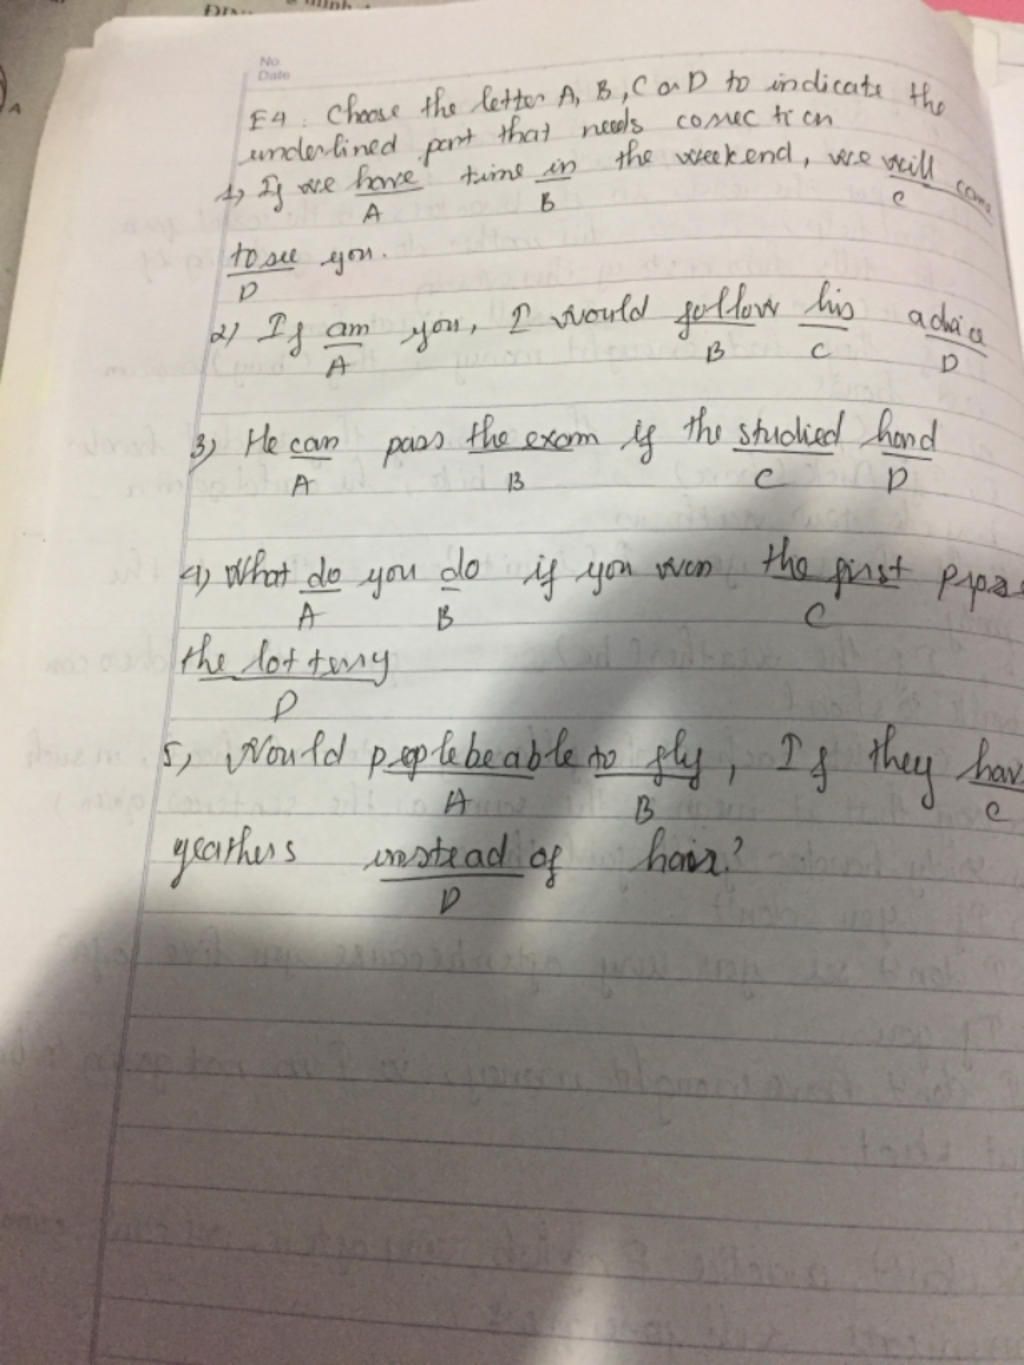 No.
Date
E4: Choose the letter A, B, C or D to indicate the
underlined part that needs correction
1, If we have time in the weekend, we will come
A B C
to see you.
D
2) If am you, I would follow his advice
A B C D
3, He can pass the exam if the studied hard
A B C D
4) What do you do if you won the first
A B C
the lottery
D
5, Would people be able to fly, If they hav
A B C
geathers instead of hair?
D